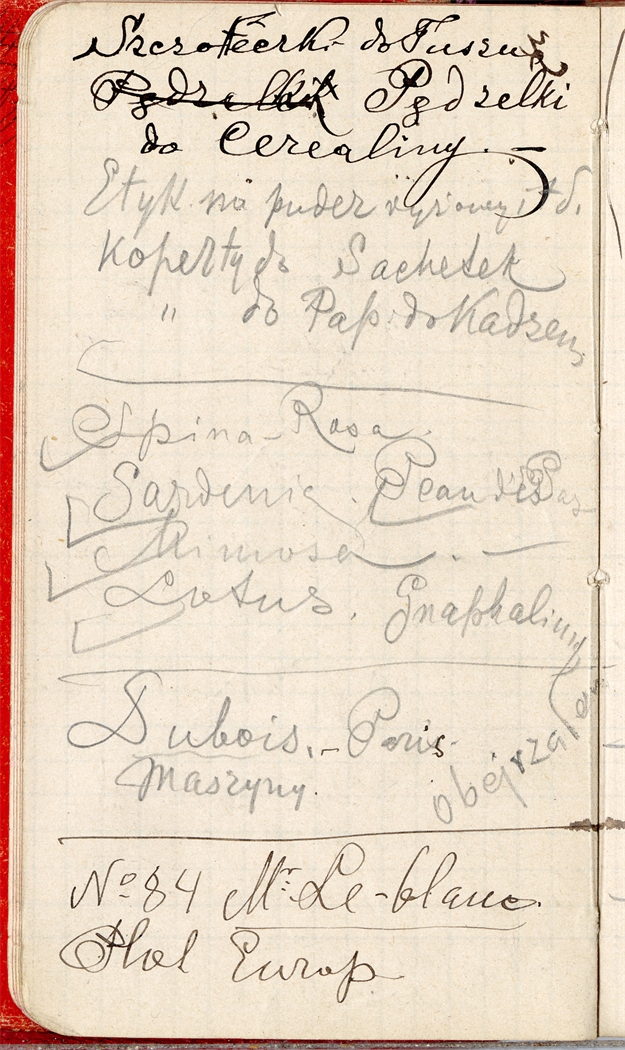 Szczoteczki do Tuszu
Pędzelki
do Cerealiny. —
Etyk na puder ryżowy i t d.
Koperty do Sachetek
" do Pap. do Kadzen
Spina-Rosa.
Gardenia. Peau d'Es
Mimosa. —
Lotus. Gnaphaliny
Dubois. - Paris.
Maszyny. obejrzałem
No 84 Mr. Le-blanc.
Hotel Europ